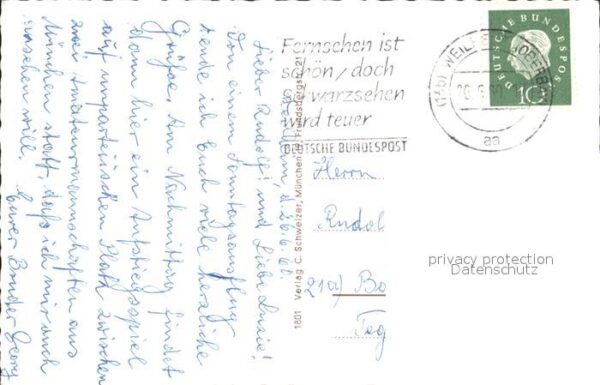 Weilheim, d. 26.6.60.
Lieber Rudolf! und Liebe Luzie!
Von einem Sonntagsausflug
sende ich Euch viele herzliche
Grüße. Am Nachmittag findet
dann hier ein Aufstiegsspiel
auf unparteiischen Platz zwischen
zwei Amateurmannschaften aus
München statt, daß ich mir auch
ansehen will.
Euer Bruder Georg
1801 Verlag C. Schweizer, München, Frundsbergstr. 21
Fernsehen ist
schön, doch
Schwarzsehen
wird teuer
DEUTSCHE BUNDESPOST
WEILHEIM (OBERBAY)
26.6.60
aa
DEUTSCHE BUNDESPOST
10
Herrn
Rudol
21a) Bo
privacy protection
Datenschutz